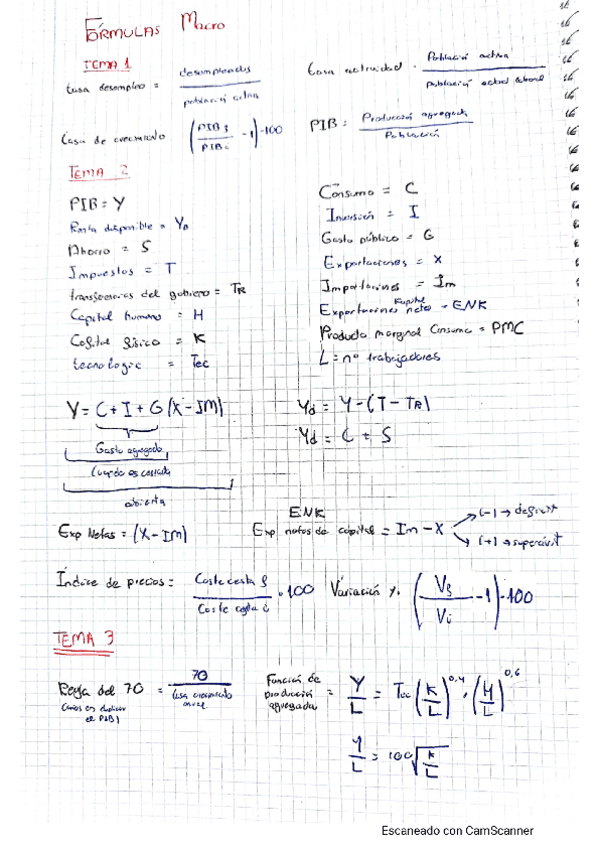 FÓRMULAS MACRO
TEMA 1
tasa desempleo = desempleados / población activa
tasa actividad = Población activa / población edad laboral
Tasa de crecimiento (PIB f / PIB i - 1) · 100
PIB = Producción agregada / Población
TEMA 2
PIB = Y
Renta disponible = Yd
Ahorro = S
Impuestos = T
transferencias del gobierno = TR
Capital humano = H
Capital físico = K
tecnologia = Tec
Consumo = C
Inversión = I
Gasto público = G
Exportaciones = X
Importaciones = Im
Exportaciones Kapital netas = ENK
Producto marginal Consumo = PMC
L = nº trabajadores
Y = C + I + G (X - IM)
Gasto agregado
Cuando es cerrada
abierta
Yd = Y - (T - TR)
Yd = C + S
Exp Netas = (X - IM)
ENK
Exp netas de capital = Im - X
(-) → deficit
(+) → superávit
Índice de precios = Coste cesta f / Coste cesta i · 100
Variación % (Vf / Vi - 1) · 100
TEMA 3
Regla del 70 = 70 / tasa crecimiento anual
(años en duplicar el PIB)
Función de producción agregada = Y/L = Tec (K/L)^0,4 · (H/L)^0,6
Y/L = 100 √(K/L)
Escaneado con CamScanner